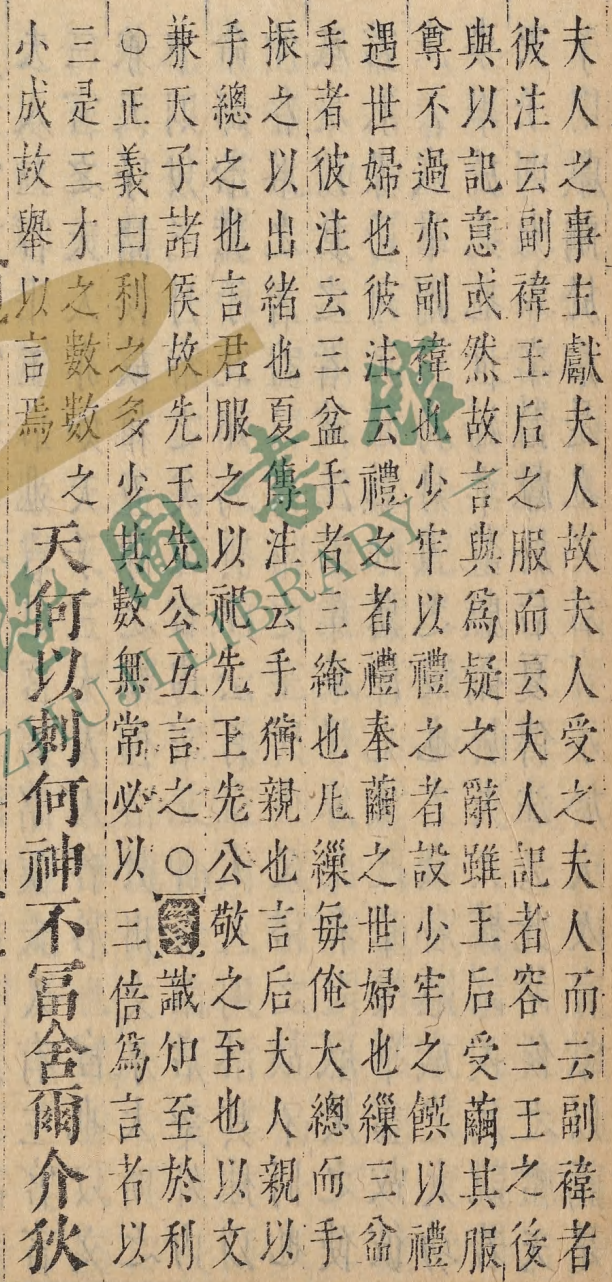 夫人之事主獻夫人故夫人受之夫人而云副褘者
彼注云副褘王后之服而云夫人記者容二王之後
與以記意或然故言與爲疑之辭雖王后受繭其服
尊不過亦副褘也少牢以禮之者設少牢之饌以禮
遇世婦也彼注云禮之者禮奉繭之世婦也繅三盆
手者彼注云三盆手者三淹也凡繅每俺大總而手
振之以出緒也夏傳注云手猶親也言后夫人親以
手總之也言君服之以祀先王先公敬之至也以文
兼天子諸侯故先王先公互言之○箋識知至於利
○正義曰利之多少其數無常必以三倍爲言者以
三是三才之數數之
小成故舉以言焉
天何以刺何神不冨舍爾介狄
ZHUJI LIBRARY